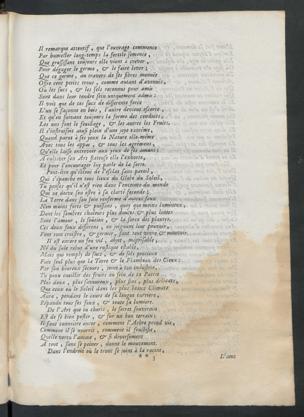 Il remarque attentif, que l'ouvrage commence
Par humecter long-temps la fertile semence,
Que grossissant toujours elle vient à crever,
Pour dégager le germe, & le faire lever;
Que ce germe, au travers de ses fibres
Offre cent petits trous, comme autant
Ou les sucs, & les sels reconnus pour amis
Sont dans leur tendre sein uniquement admis:
Il voit que de ces sucs de différente force
L'un se façonne en bois, l'autre devient écorce
Et qu'en suivant toujours la forme des conduits
Les uns sont le feuillage, & les autres les Fruits.
Il s'instruisoit ainsi plein d'une joye extrême,
Quand parut à ses yeux la Nature elle-même
Avec tous les appas, & tous les agrémens,
Qu'elle laisse entrevoir aux yeux de ses amans:
A cultiver ses Arts flateuse elle l'exhorte,
Et pour l'encourager luy parle de la sorte.
Peut-être qu'ébloui de l'éclat sans pareil,
Que répandu en tous lieux du Globe du Soleil,
Tu penses qu'il n'est rien dans l'enceinte du monde
Qui ne doive son être à sa clarté seconde;
La Terre dans son sein renferme d'autres feux
Non moins forts & puissans, quoy que moins lumineux,
Dont les sombres chaleurs plus douces & plus lentes
Sont l'amour, le soutien, & la force des plantes.
Ces deux feux differens, se joignent leur pouvoir,
Font tout croistre, & germer, font tout vivre, & mouvoir.
Il est encore un feu vil, abjet, méprisable,
Né du sale rebut d'une rustique estable,
Mais qui rempli de sucs, & de sels precieux
Fait seul plus que la Terre & le Flambeau des Cieux:
Par son heureux secours, joint à ton industrie,
Tu peux cueillir des fruits au sein de ta Patrie
Plus doux, plus savoureux, plus fins, plus délicats,
Que ceux où le Soleil dans les plus beaux Climats
Aura, pendant le cours de sa longue carriere,
Répandu tous ses feux, & toute sa lumiere.
De l'Art que tu cheris, le secret souverain
Est de se bien poster, & sur un bon terrain;
Il faut connoître encor, comment l'Arbre prend vie,
Comment il se nourrit, comment il fructifie,
Quelle vertu l'anime, & si diversement
A tout, sans se peiner, donne le mouvement.
Dans l'endroit où le tronc se joint à la racine,
* * 3
L'ame